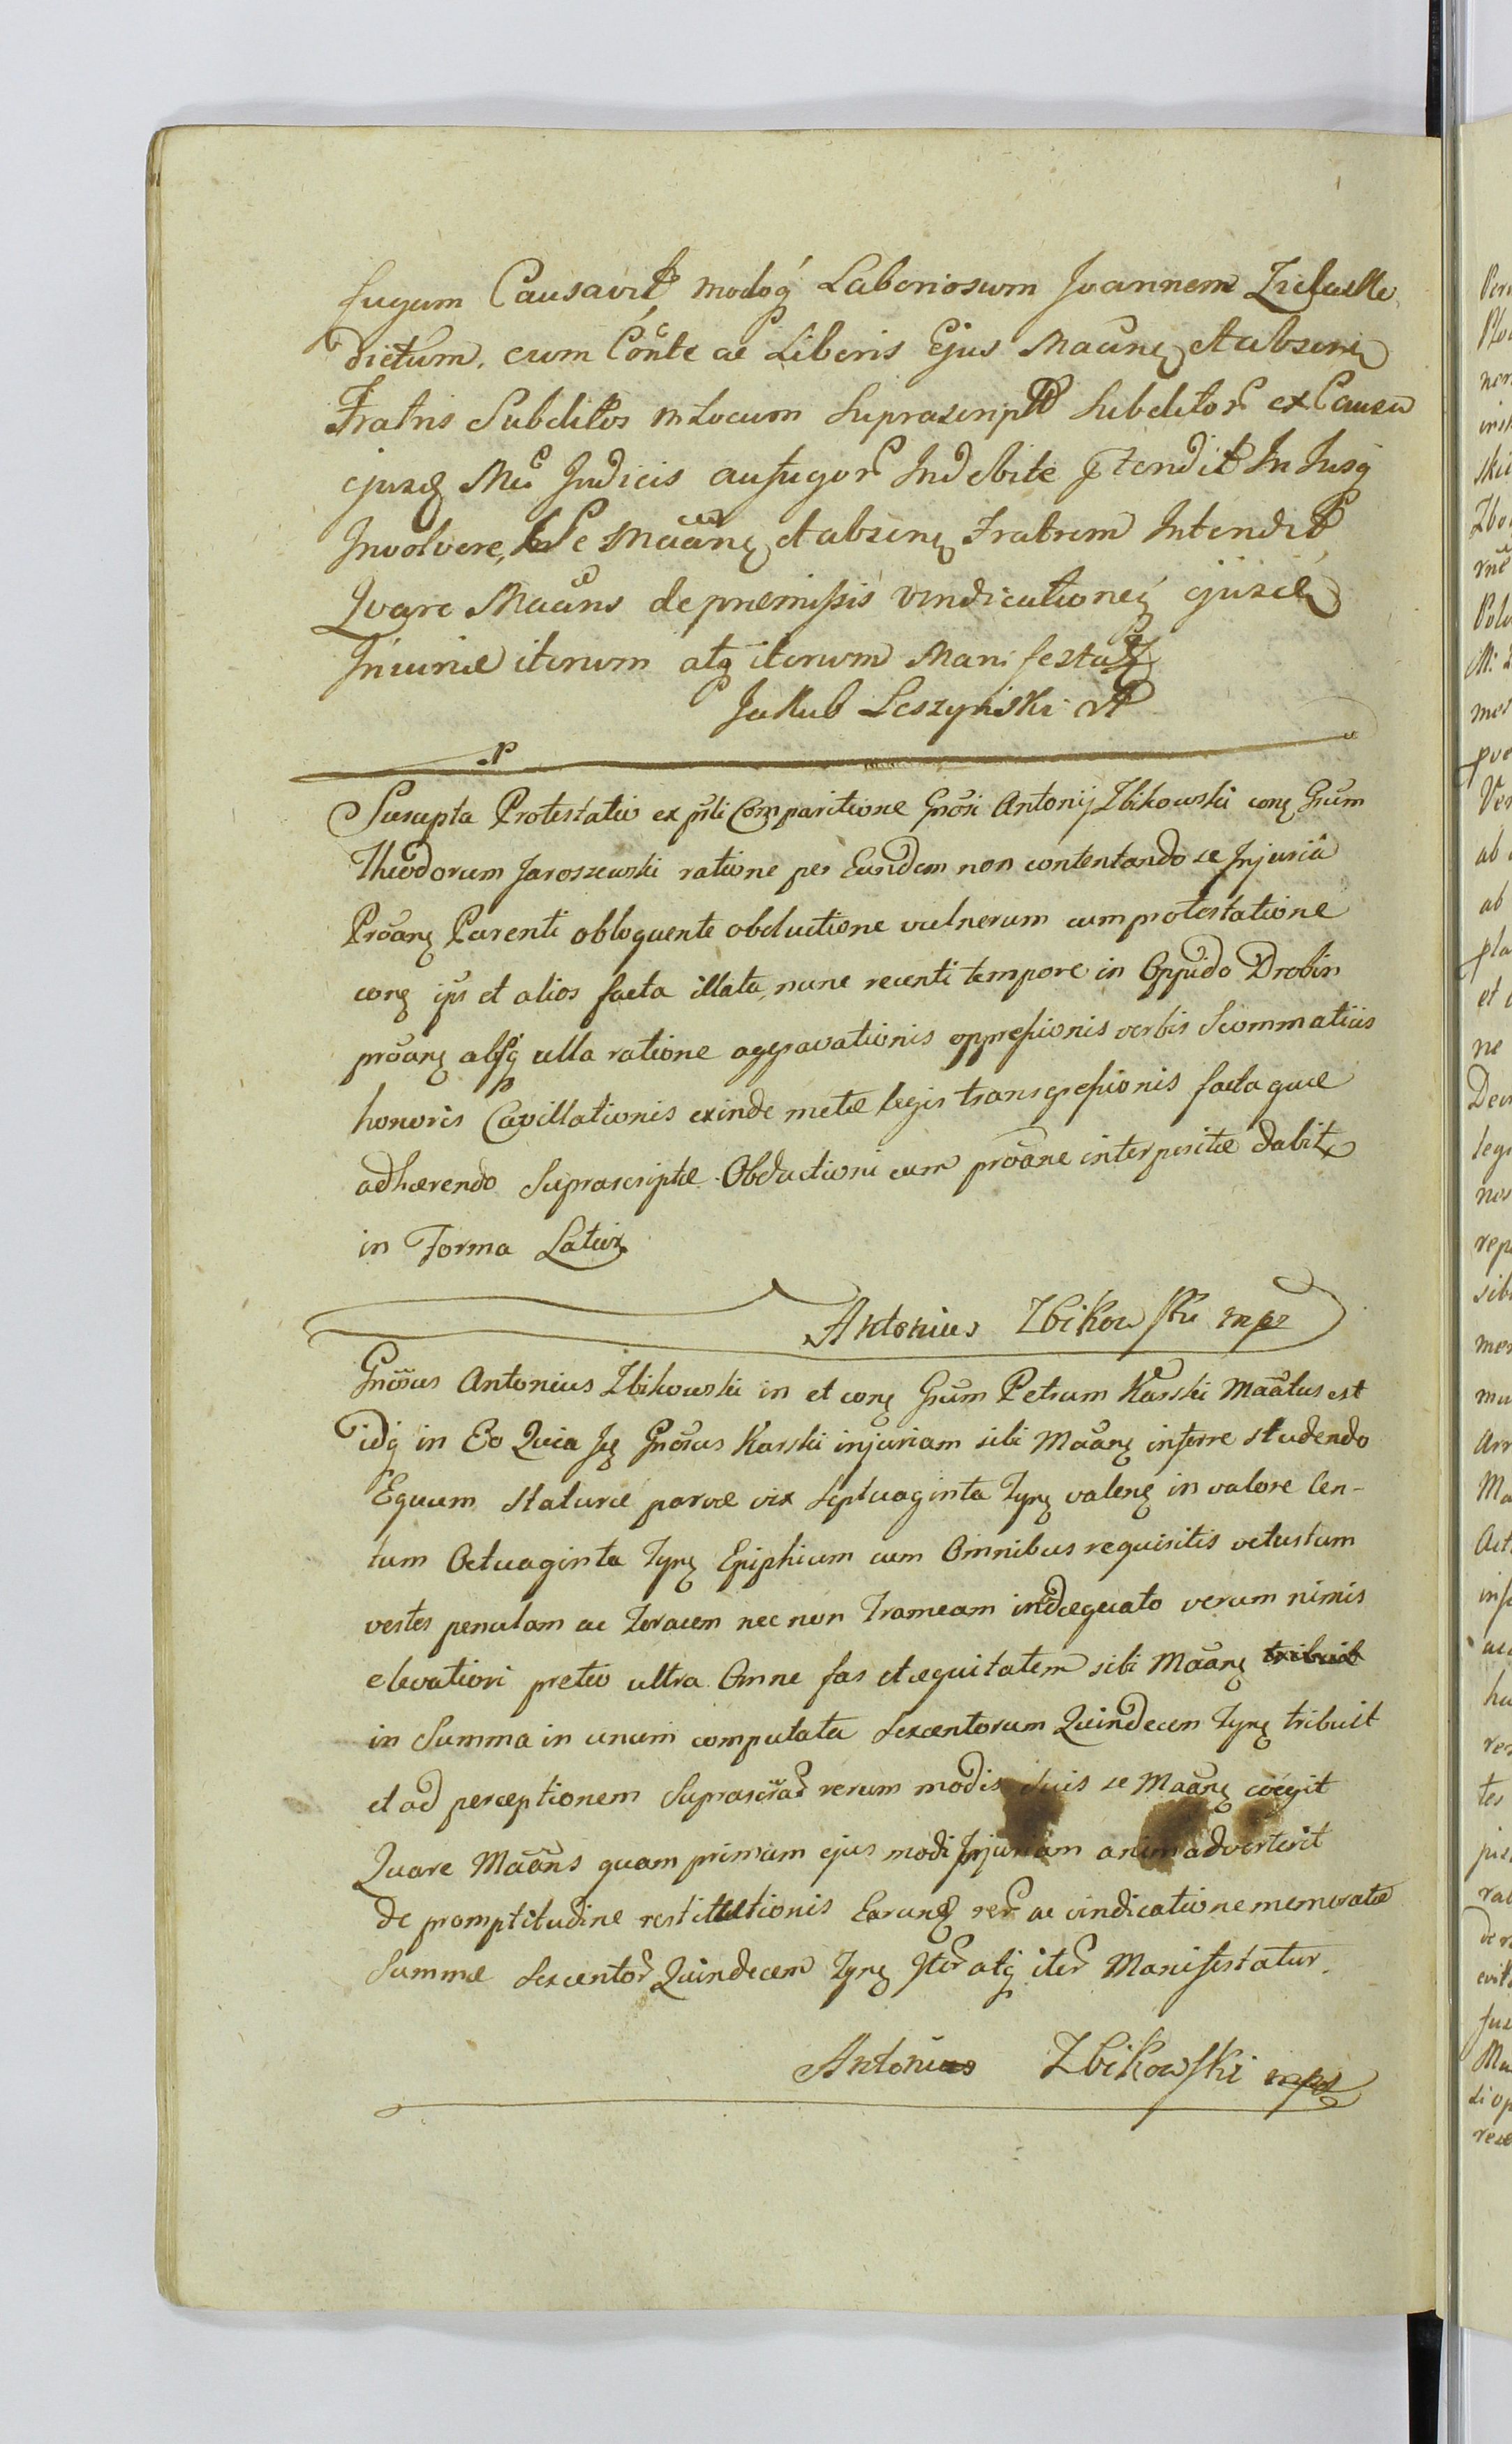 fugam Causavit, modoq́ Laboriosum Joannem
dictum, cum Cōnte ac Liberis Ejus Maāñ et absenē
Fratris Subditos in Locum suprascript Subditor ex Causa
ejusd Mci Judicis aufugor Indebite tendit In Jusq
Involvere, Se Māānē et absenē Fratrem Intendit
Qvare Maāns de præmissis vindicationeq́ ejusd
Injuriæ iterum atq iterum Manifestat
Jakub Leszyński
Suscepta Protestatio ex p̄sti Comparitione Gnōsi Antonij Zbikowski conē Gn̄sum
Theodorum Jaroszewski ratione per Eundem non contentando se Injuriâ
Prōanē Parenti obloquente obductione vulnerum cum protestatione
conē ips et alios facta illata, nunc recenti tempore in Oppido Drobin
prōanē absq́ ulla ratione aggravationis oppressionis verbis Scommaticis
honoris Cavillationis exinde metæ legis transgressionis facta quæ
adhærendo Suprascriptæ Obductioni cum prōane interpositæ dabit
in Forma Latiori
Antonius Zbikowski mpr
Gnōsus Antonius Zbikowski in et conē Gn̄sum Petrum Karski Māātus est
idq́ in Eo Quia Is Gnōsus Karski injuriam sibi Māānē inferre studendo
Equum staturæ parvæ vix septuaginta Tynē valenē in valore Cen-
tum Octuaginta Tynē Epiphium cum Omnibus requisitis vetustum
vestes penulam ac Toracem nec non Frameam inadæquato verum nimis
elevatiori pretio ultra Omne fas et æquitatem sibi Māānē tribuit
in Summa in unum computata Sexcentorum Quindecem Tynē tribuit
et ad perceptionem Suprascr̄ar rerum modis suis se Māānē coëgit
Quare Māāns quam primum ejus modi Injuriam animadverterit
de promptitudine restitutionis Earund rer ac vindicatione memoratæ
Summæ Sexcentor Quindecem Tynē Iter atq́ iter Manifestatur.
Antonius Zbikowski mpr